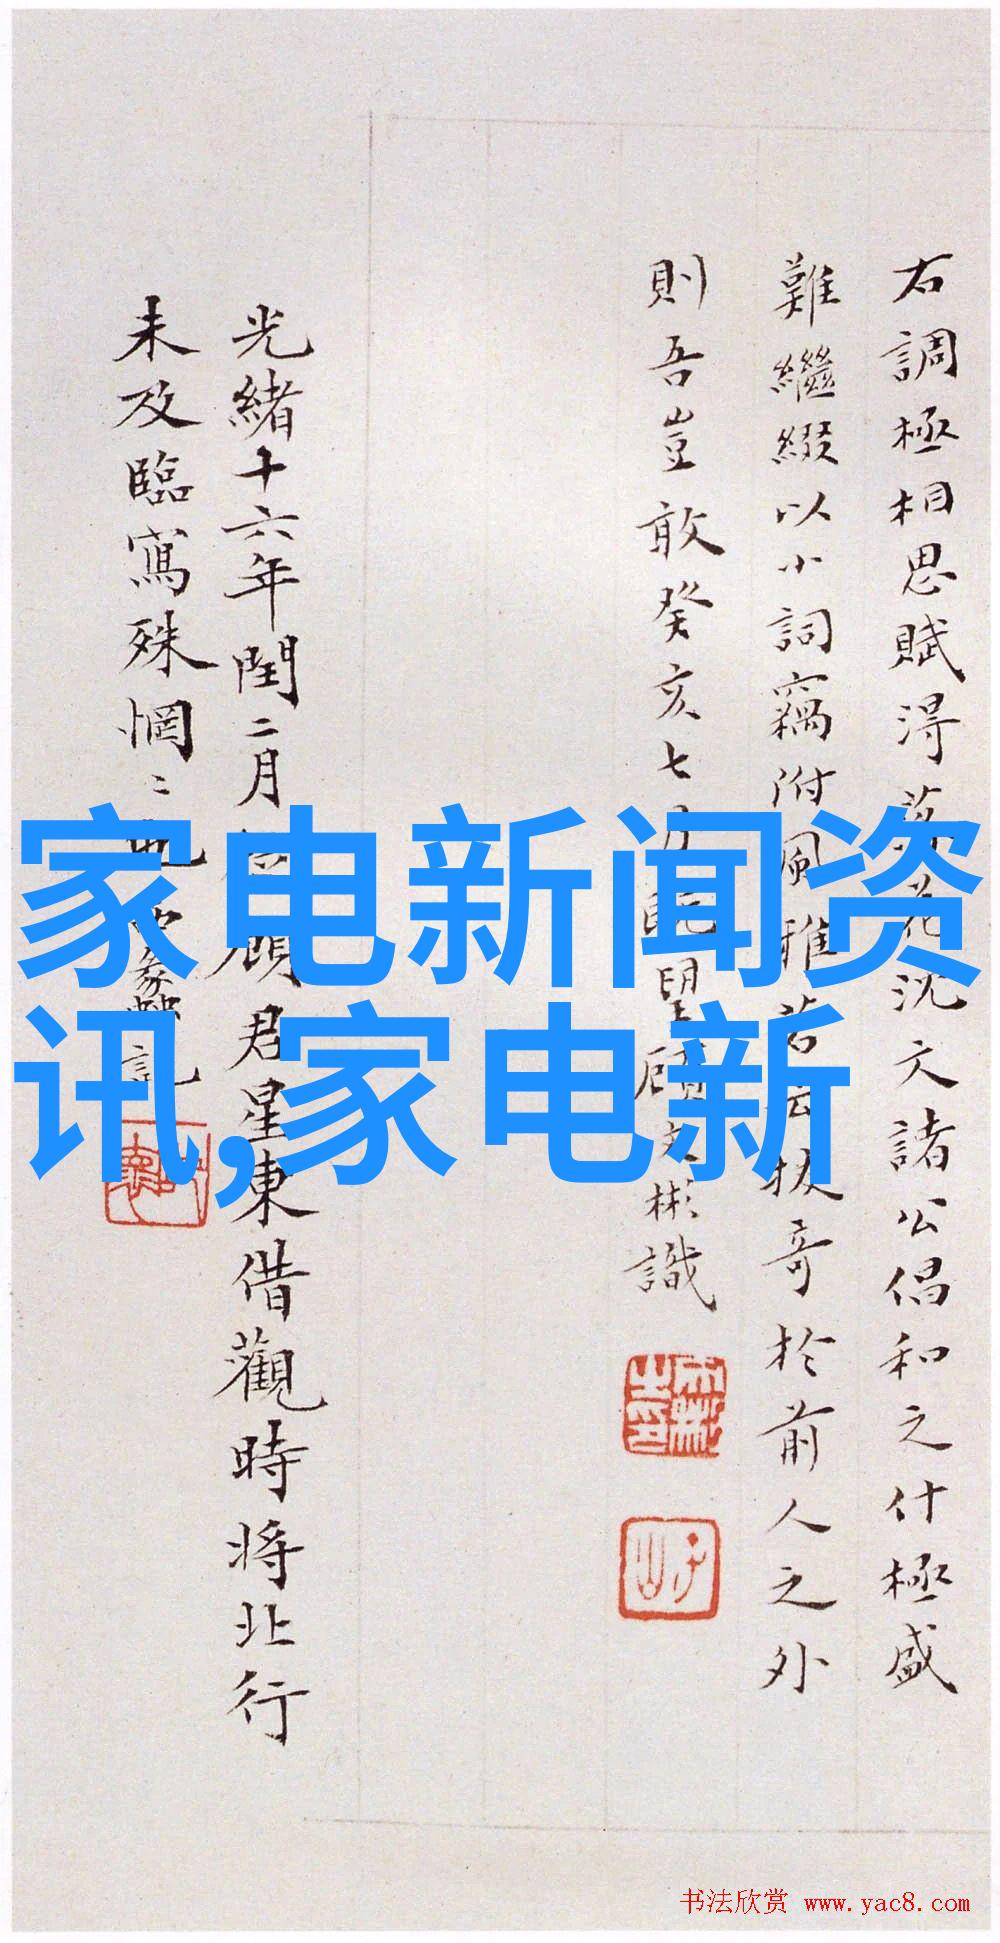 右調極相思賦得落花沈文諸公倡和之什極盛
難繼綴以小詞竊附風雅若云拔奇於前人之外
則吾豈敢癸亥七月既望顧文彬識
光緒十六年閏二月 顧君星東借觀時將北行
未及臨寫殊惘〻也 蠡記
家电新闻资
讯,家电新
书法欣赏 www.yac8.com